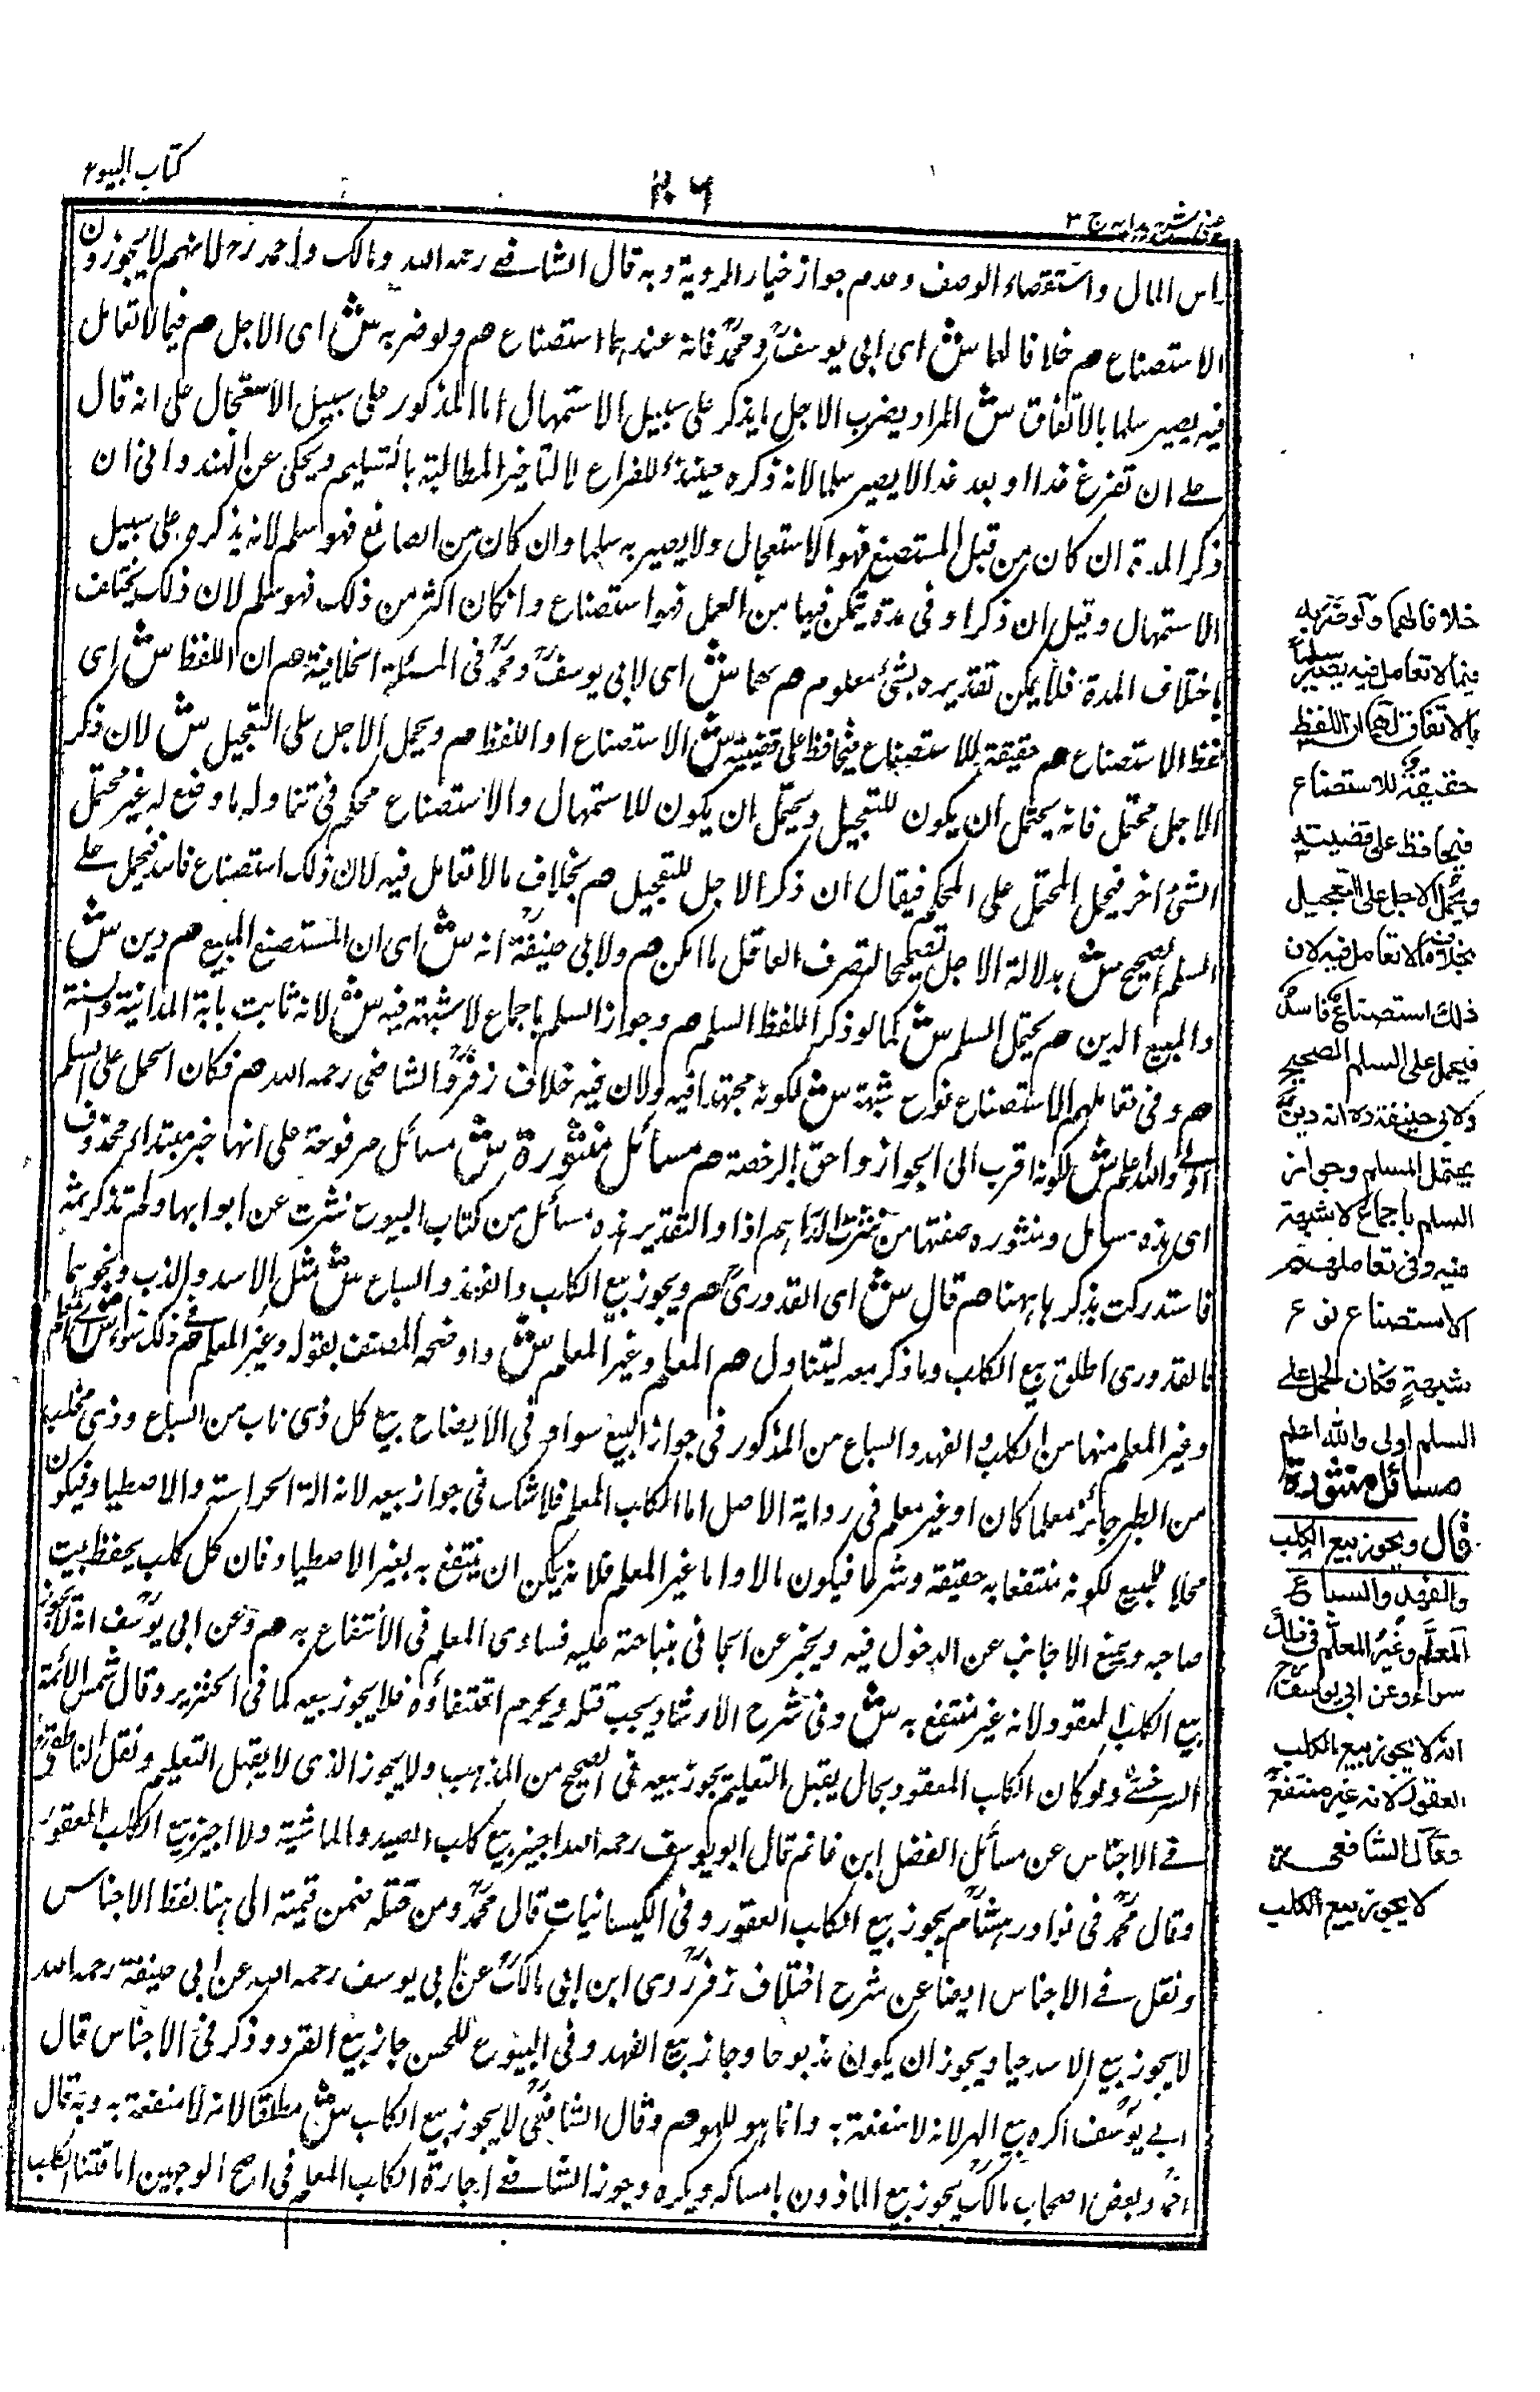 عینی شرح ہدایہ ج ۳
۲۰۶
کتاب البیوع
راس المال واستقصاء الوصف وعدم جواز خیار الرویة وبه قال الشافعے رحمه الله ومالک واحمد رح لانهم لا یجوزون
الاستصناع هم خلافا لهما ش ای ابی یوسف ومحمد فانه عندہما استصناع هم ولو ضربه ش ای الاجل هم فیما لا تعامل
فیه یصیر سلما بالاتفاق ش المراد بضرب الاجل ما یذکر علی سبیل الاستمهال اما المذکور علی سبیل الاستعجال علی انه قال
علے ان تفرغ غدا او بعد غد لا یصیر سلما لانه ذکره حینئذ للفراغ لا لتاخیر المطالبة بالتسلیم ویحکی عن الهندوانی ان
ذکر المدة ان کان من قبل المستصنع فهو الاستعجال ولا یصیر به سلما وان کان من الصانع فهو سلم لانه یذکره علی سبیل
الاستمهال وقیل ان ذکر اوفی مدة یتمکن فیها من العمل فهو استصناع وان کان اکثر من ذلک فهو سلم لان ذلک یختلف
باختلاف المدة فلا یمکن تقدیره بشئ معلوم هم لهما ش ای لابی یوسف ومحمد فی المسئلة الخلافیة هم ان اللفظ ش ای
لفظ الاستصناع هم حقیقة للاستصناع فیحافظ علی قضیته ش الاستصناع او اللفظ هم ویحمل الاجل علی التعجیل ش لان ذکر
الاجل محتمل فانه یحتمل ان یکون للتعجیل ویحتمل ان یکون للاستمهال والاستصناع محکم فی تناوله ما وضع له غیر محتمل
الشئ اخر فیحمل المحتمل علی المحکم فیقال ان ذکر الاجل للتعجیل هم بخلاف ما لا تعامل فیه لان ذلک استصناع فاسد فیحمل علے
السلم الصحیح ش بدلالة الاجل تصحیحا لتصرف العاقل ما امکن هم ولابی حنیفة انه ش ای ان المستصنع المبیع هم دین ش
والمبیع الدین هم یحتمل السلم ش کما لو ذکر اللفظ السلم هم وجواز السلم باجماع لا شبهة فیه ش لانه ثابت بایة المداینة والسنة
هم وفی تعاملهم الاستصناع نوع شبهة ش لکونه مجتهدا فیه ولان فیه خلاف زفر والشافعی رحمه الله هم فکان الحمل علی السلم
اولے والله اعلم ش لکونه اقرب الی الجواز واحق بالرخصة هم مسائل منثورة ش مسائل مرفوعة علی انها خبر مبتداء محذوف
ای هذه مسائل ومنثوره صفتها من نثرت الدراهم اذا والتقدیر هذه مسائل من کتاب البیوع نثرت عن ابوابها ولم تذکر ثمه
فاستدرکت بذکرها ههنا هم قال ش ای القدوری هم ویجوز بیع الکلب والفهد والسباع ش مثل الاسد والذئب ونحوهما
فالقدوری اطلق بیع الکلب وما ذکر معه لیتناول هم المعلم وغیر المعلم ش واوضحه المصنف بقوله وغیر المعلم هم فی ذلک سواء ش ای المعلم
وغیر المعلم منها من الکلب والفهد والسباع من المذکور فی جواز البیع سواء وفی الایضاح بیع کل ذی ناب من السباع وذی مخلب
من الطیر جائز معلما کان او غیر معلم فی روایة الاصل اما الکلب المعلم فلا شک فی جواز بیعه لانه الة الحراسة والاصطیاد فیکون
محلا للبیع لکونه منتفعا به حقیقة وشرعا فیکون مالا واما غیر المعلم فلانه یمکن ان ینتفع به بغیر الاصطیاد فان کل کلب یحفظ بیت
صاحبه ویمنع الاجانب عن الدخول فیه ویخبر عن الجائی بنباحته علیه فساوی المعلم فی الانتفاع به هم وعن ابی یوسف انه لا یجوز
بیع الکلب العقور لانه غیر منتفع به ش وفی شرح الارشاد یجب قتله ویحرم اقتناؤه فلا یجوز بیعه کما فی الخنزیر وقال شمس الائمة
السرخسی ولو کان الکلب العقور بحال یقبل التعلیم یجوز بیعه فی الصحیح من المذهب ولا یجوز الذی لا یقبل التعلیم ونقل الناطفی
فے الاجناس عن مسائل الفضل ابن غانم قال ابو یوسف رحمه الله اجیز بیع کلب الصید والماشیة ولا اجیز بیع الکلب العقور
وقال محمد فی نوادر هشام یجوز بیع الکلب العقور وفی الکیسانیات قال محمد ومن قتله ضمن قیمته الی هنا لفظ الاجناس
ونقل فے الاجناس ایضا عن شرح اختلاف زفر روی ابن ابی مالک عن ابی یوسف رحمه الله عن ابی حنیفة رحمه الله
لا یجوز بیع الاسد حیا ویجوز ان یکون مذبوحا وجاز بیع الفهد وفی البیوع للحسن جاز بیع القرد وذکر فی الاجناس قال
ابے یوسف اکره بیع الهر لانه لا منفعة به وانما هو للهو هم وقال الشافعی لا یجوز بیع الکلب ش مطلقا لانه لا منفعة به وبه قال
احمد وبعض اصحاب مالک یجوز بیع الماذون بامساکه ویکره وجوز الشافعے اجارة الکلب المعلم فی اصح الوجهین اما اقتناء الکلب
خلافا لهما ولو ضربه
فیما لا تعامل فیه یصیر سلماً
بالاتفاق لهما ان اللفظ
حقیقة للاستصناع
فیحافظ علی قضیته
ویحمل الاجل علی التعجیل
بخلاف ما لا تعامل فیه لان
ذلک استصناع فاسد
فیحمل علی السلم الصحیح
ولابی حنیفة رہ انه دین
یحتمل السلم وجواز
السلم باجماع لا شبهة
فیه وفی تعاملهم
الاستصناع نوع
شبهةٍ فکان الحمل علے
السلم اولی والله اعلم
مسائل منثورة
قال ویجوز بیع الکلب
والفهد والسباع
المعلَّم وغیرُ المعلَّم فی ذلک
سواء وعن ابی یوسف رح
انه لا یجوز بیع الکلب
العقور لانه غیر منتفع به
وقال الشافعی رح
لا یجوز بیع الکلب